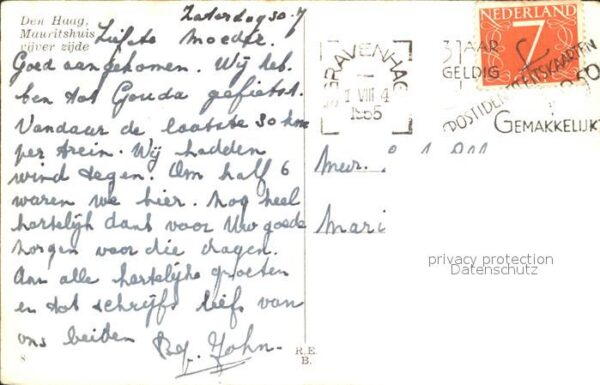 Den Haag,
Mauritshuis
vijver zijde
Zaterdag 30.7
Liefste Moeder.
Goed aangekomen. Wij heb
ben tot Gouda gefietst.
Vandaar de laatste 30 km
per trein. Wij hadden
wind tegen. Om half 6
waren we hier. Nog heel
hartelijk dank voor Uw goede
zorgen voor die dagen.
Aan alle hartelijke groeten
en tot schrijfs liefs van
ons beiden
Bep. John.
8
R.E.
B.
NEDERLAND
7
'S GRAVENHAGE
1 VIII 4
1955
3 JAAR
GELDIG
POSTIDENTITEITSKAARTEN
GEMAKKELIJK
Mevr.
Mari
privacy protection
Datenschutz